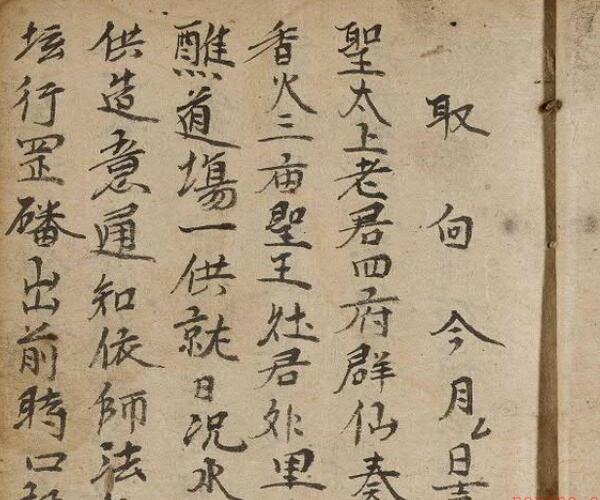 取向今月厶日
聖太上老君四府群仙奏
香火三庙聖王社君外里
醮道場一供就日况水
供造意通知依師法
坛行罡磻出前時口